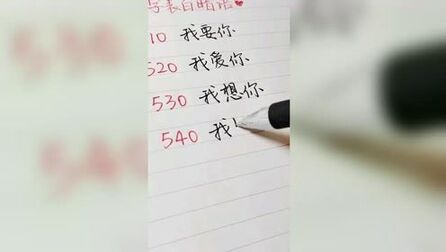 写表白暗语❤
10 我要你
520 我爱你
530 我想你
540 我